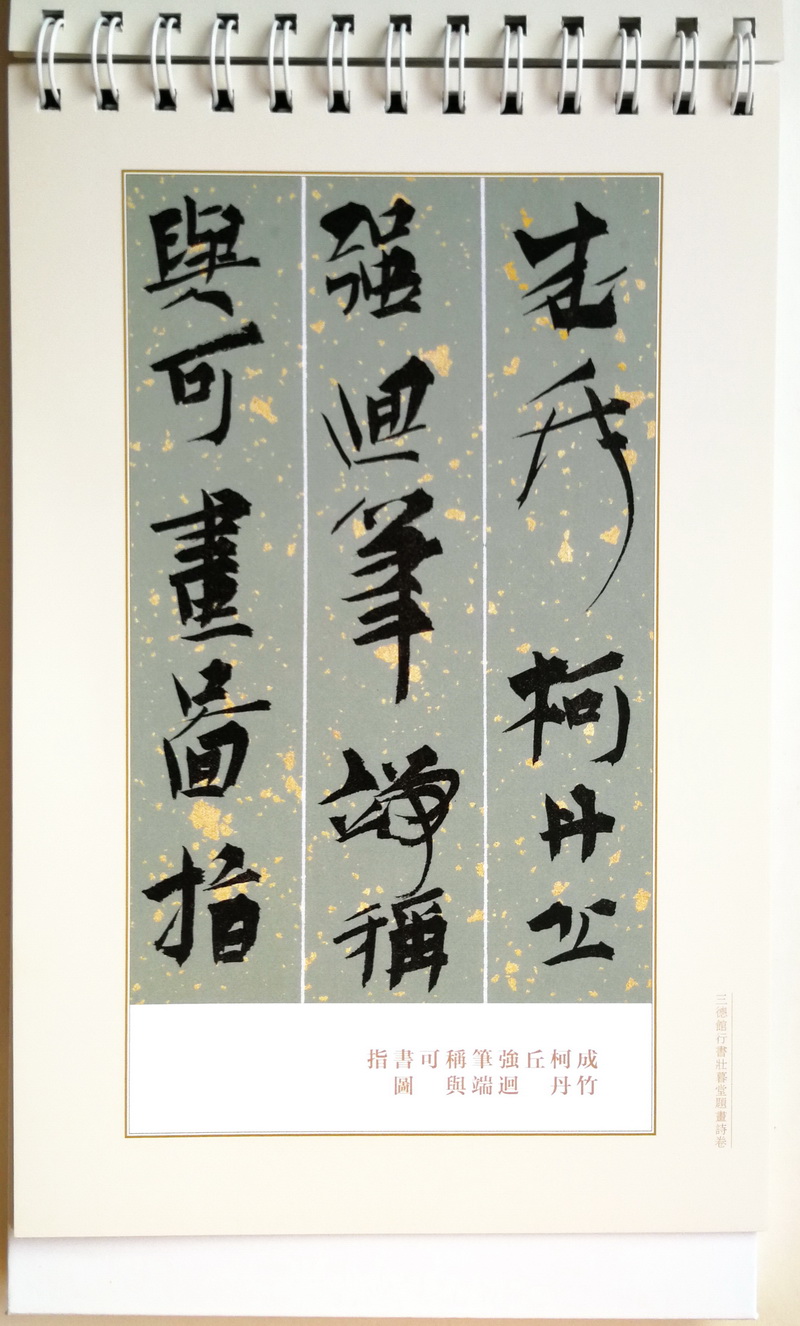 成竹柯丹丘
強迴筆端稱
與可畫圖指
成竹
柯丹
丘
強迴
筆端
稱與
可
書圖
指
三德館行書壯暮堂題畫詩卷